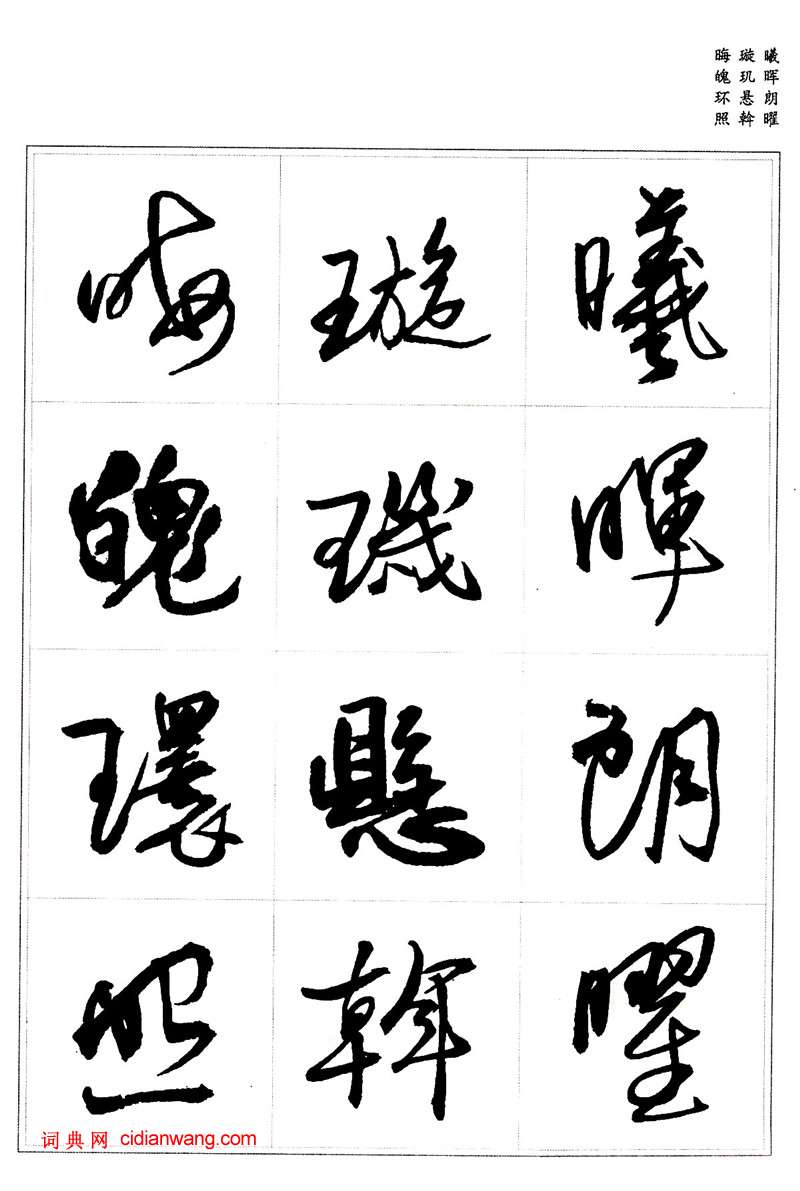 曦晖朗曜
璇玑悬斡
晦魄环照
曦暉朗曜
璇璣懸斡
晦魄環照
词典网 cidianwang.com